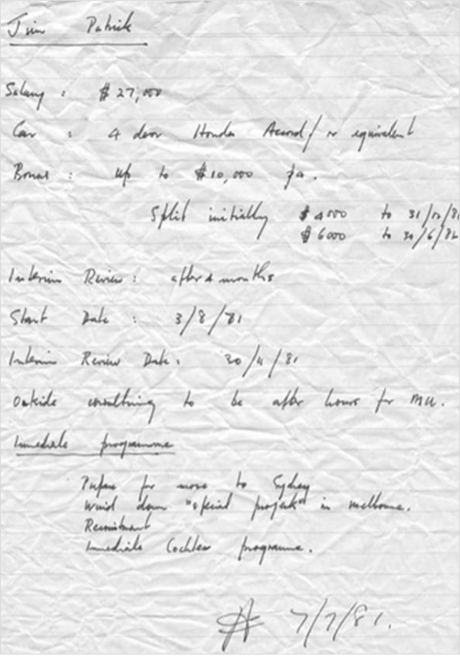 Jim Patrick
Salary : $27,000
Car : 4 door Honda Accord / or equivalent
Bonus : up to $10,000 pa.
Split initially $4000 to 31/12/81
$6000 to 30/6/82
Interim Review : after 4 months
Start Date : 3/8/81
Interim Review Date : 30/11/81
Outside consulting to be after hours for MU.
Immediate programme
Prepare for move to Sydney
Wind down "special projects" in Melbourne.
Recruitment
Immediate Cochlear programme.
7/7/81.